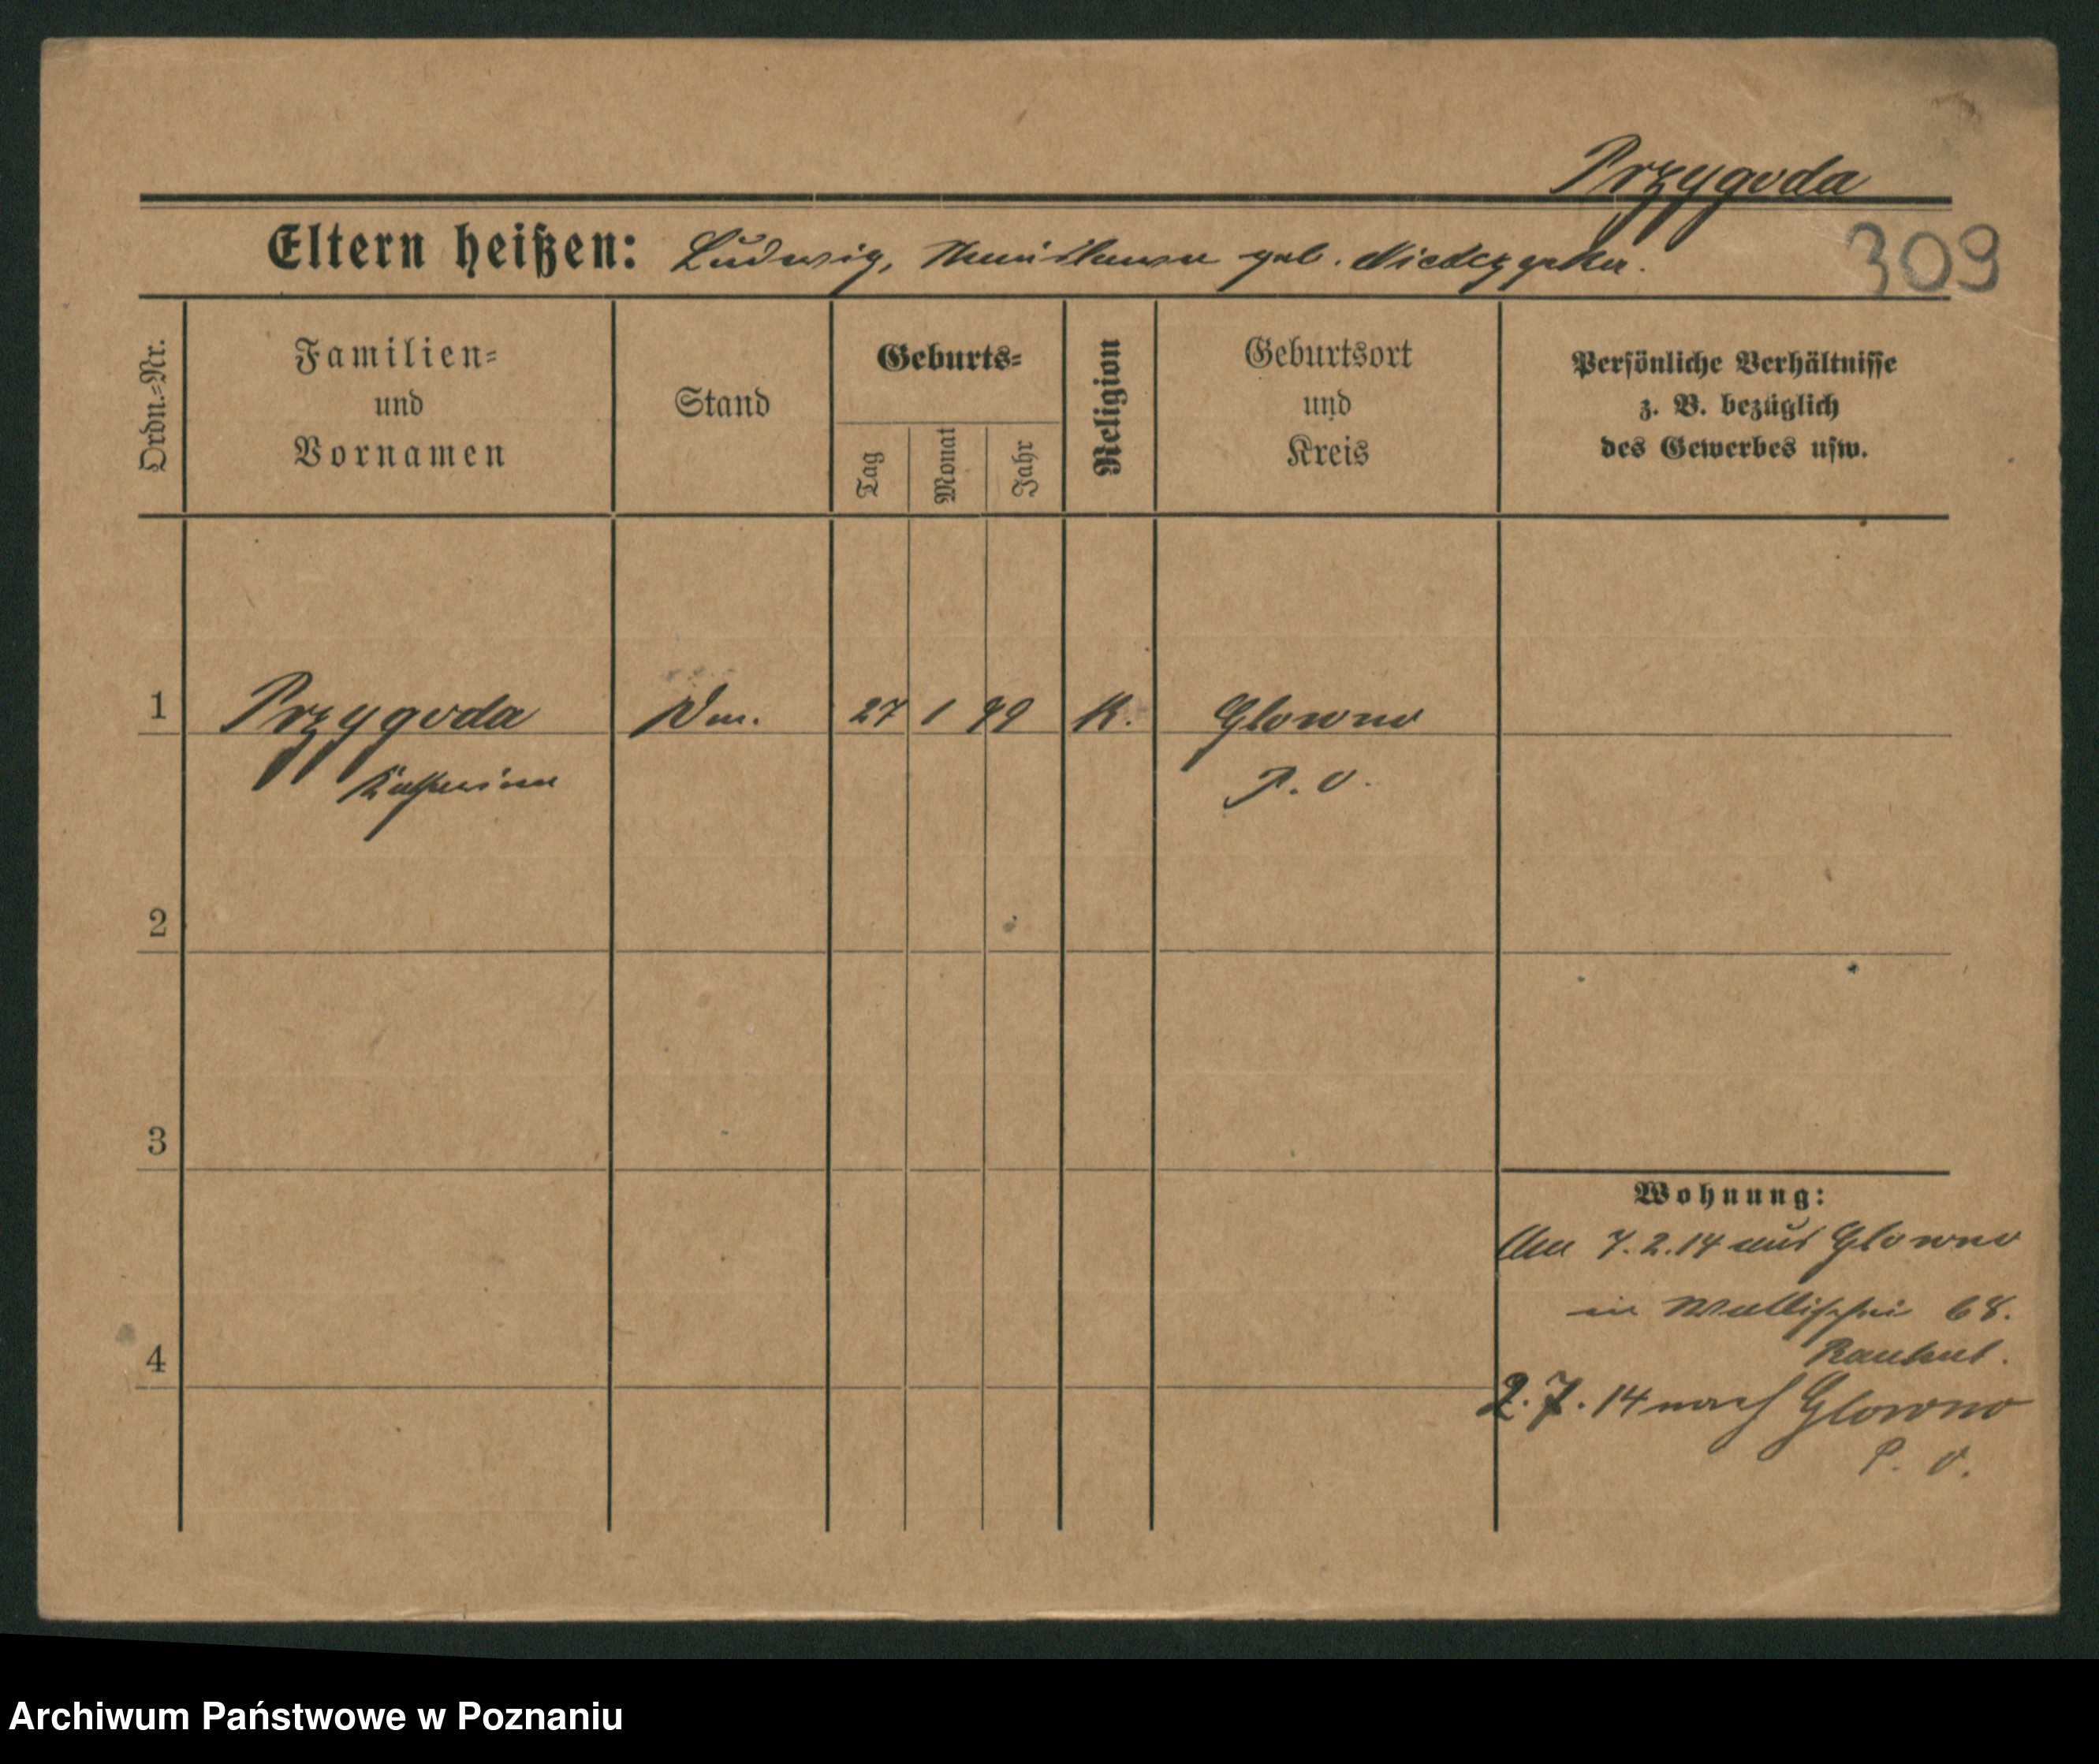 Przygoda
Eltern heißen: Ludwig, geb.
309
Ordn.-Nr.
Familien-
und
Vornamen
Stand
Geburts-
Tag
Monat
Jahr
Religion
Geburtsort
und
Kreis
Persönliche Verhältnisse
z. B. bezüglich
des Gewerbes usw.
1 Przygoda 27 1 99 K. Glowno
Katharina P. O.
2
3
4
Wohnung:
7.2.14 aus Glowno
in Wallischei 68.
2.7.14 nach Glowno
P. O.
Archiwum Państwowe w Poznaniu